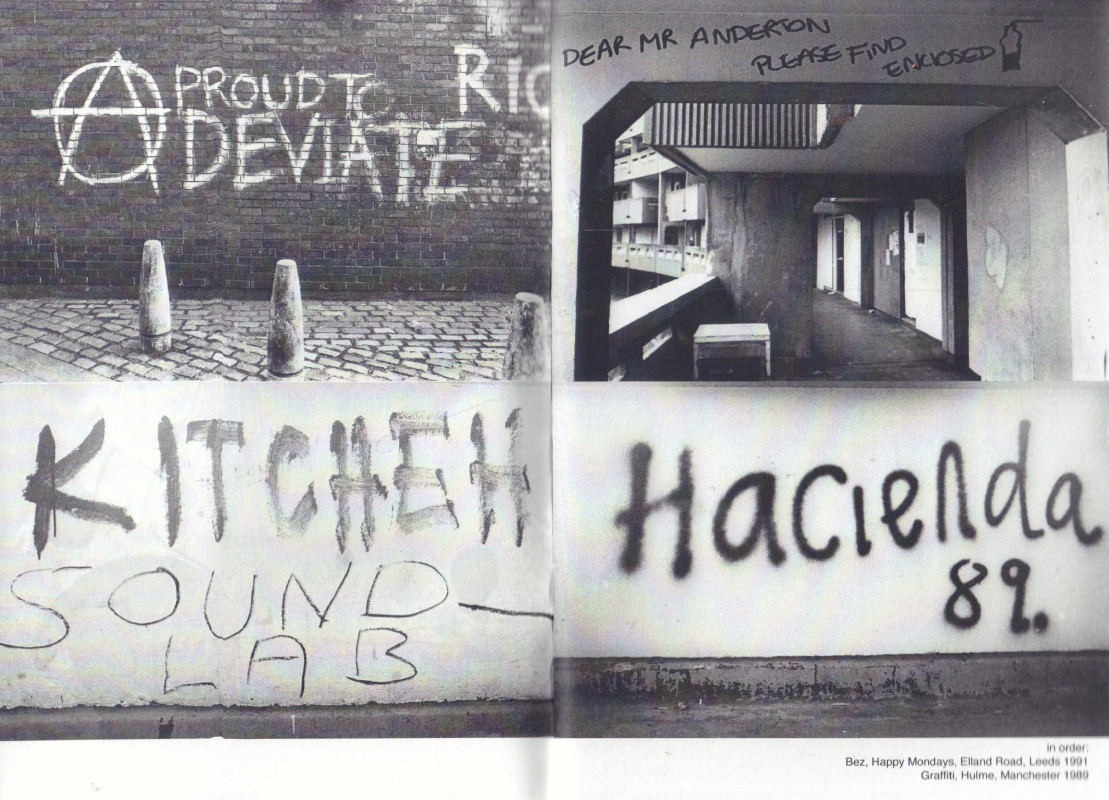 PROUD TO
DEVIATE
RIG
DEAR MR ANDERTON
PLEASE FIND
ENCLOSED
KITCHEN
SOUND-
LAB
Hacienda
89.
in order:
Bez, Happy Mondays, Elland Road, Leeds 1991
Graffiti, Hulme, Manchester 1989